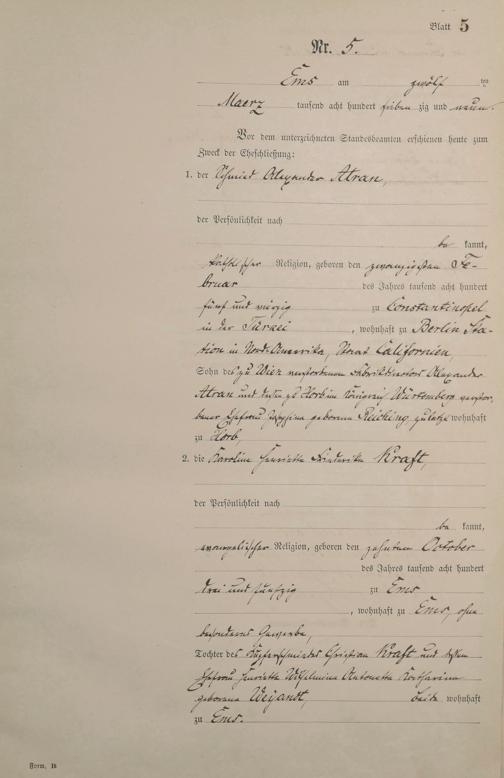 Blatt 5
Nr. 5.
Ems am zwölf ten
Maerz tausend acht hundert sieben zig und neun.
Vor dem unterzeichneten Standesbeamten erschienen heute zum
Zweck der Eheschließung:
1. der Schmied Alexander Atran,
der Persönlichkeit nach
be kannt,
katholischer Religion, geboren den zwanzigsten Fe-
bruar des Jahres tausend acht hundert
fünf und vierzig zu Constantinopel
in der Türkei, wohnhaft zu Berlin Sta-
tion in Nord-Amerika, Staat Californien,
Sohn des zu Wien verstorbenen Alexander
Atran und dessen zu Horb im Königreich Württemberg verstor-
benen Ehefrau Josephina geborene Reiching, zuletzt wohnhaft
zu Horb,
2. die Karolina Henriette Friederike Kraft,
der Persönlichkeit nach
be kannt,
evangelischer Religion, geboren den zehnten October
des Jahres tausend acht hundert
drei und fünfzig zu Ems
, wohnhaft zu Ems, ohne
besonderes Gewerbe,
Tochter des Kupferschmiedes Christian Kraft und dessen
Ehefrau Henriette Wilhelmine Antonette Katharina
geborene Weyandt, beide wohnhaft
zu Ems.
Form. B